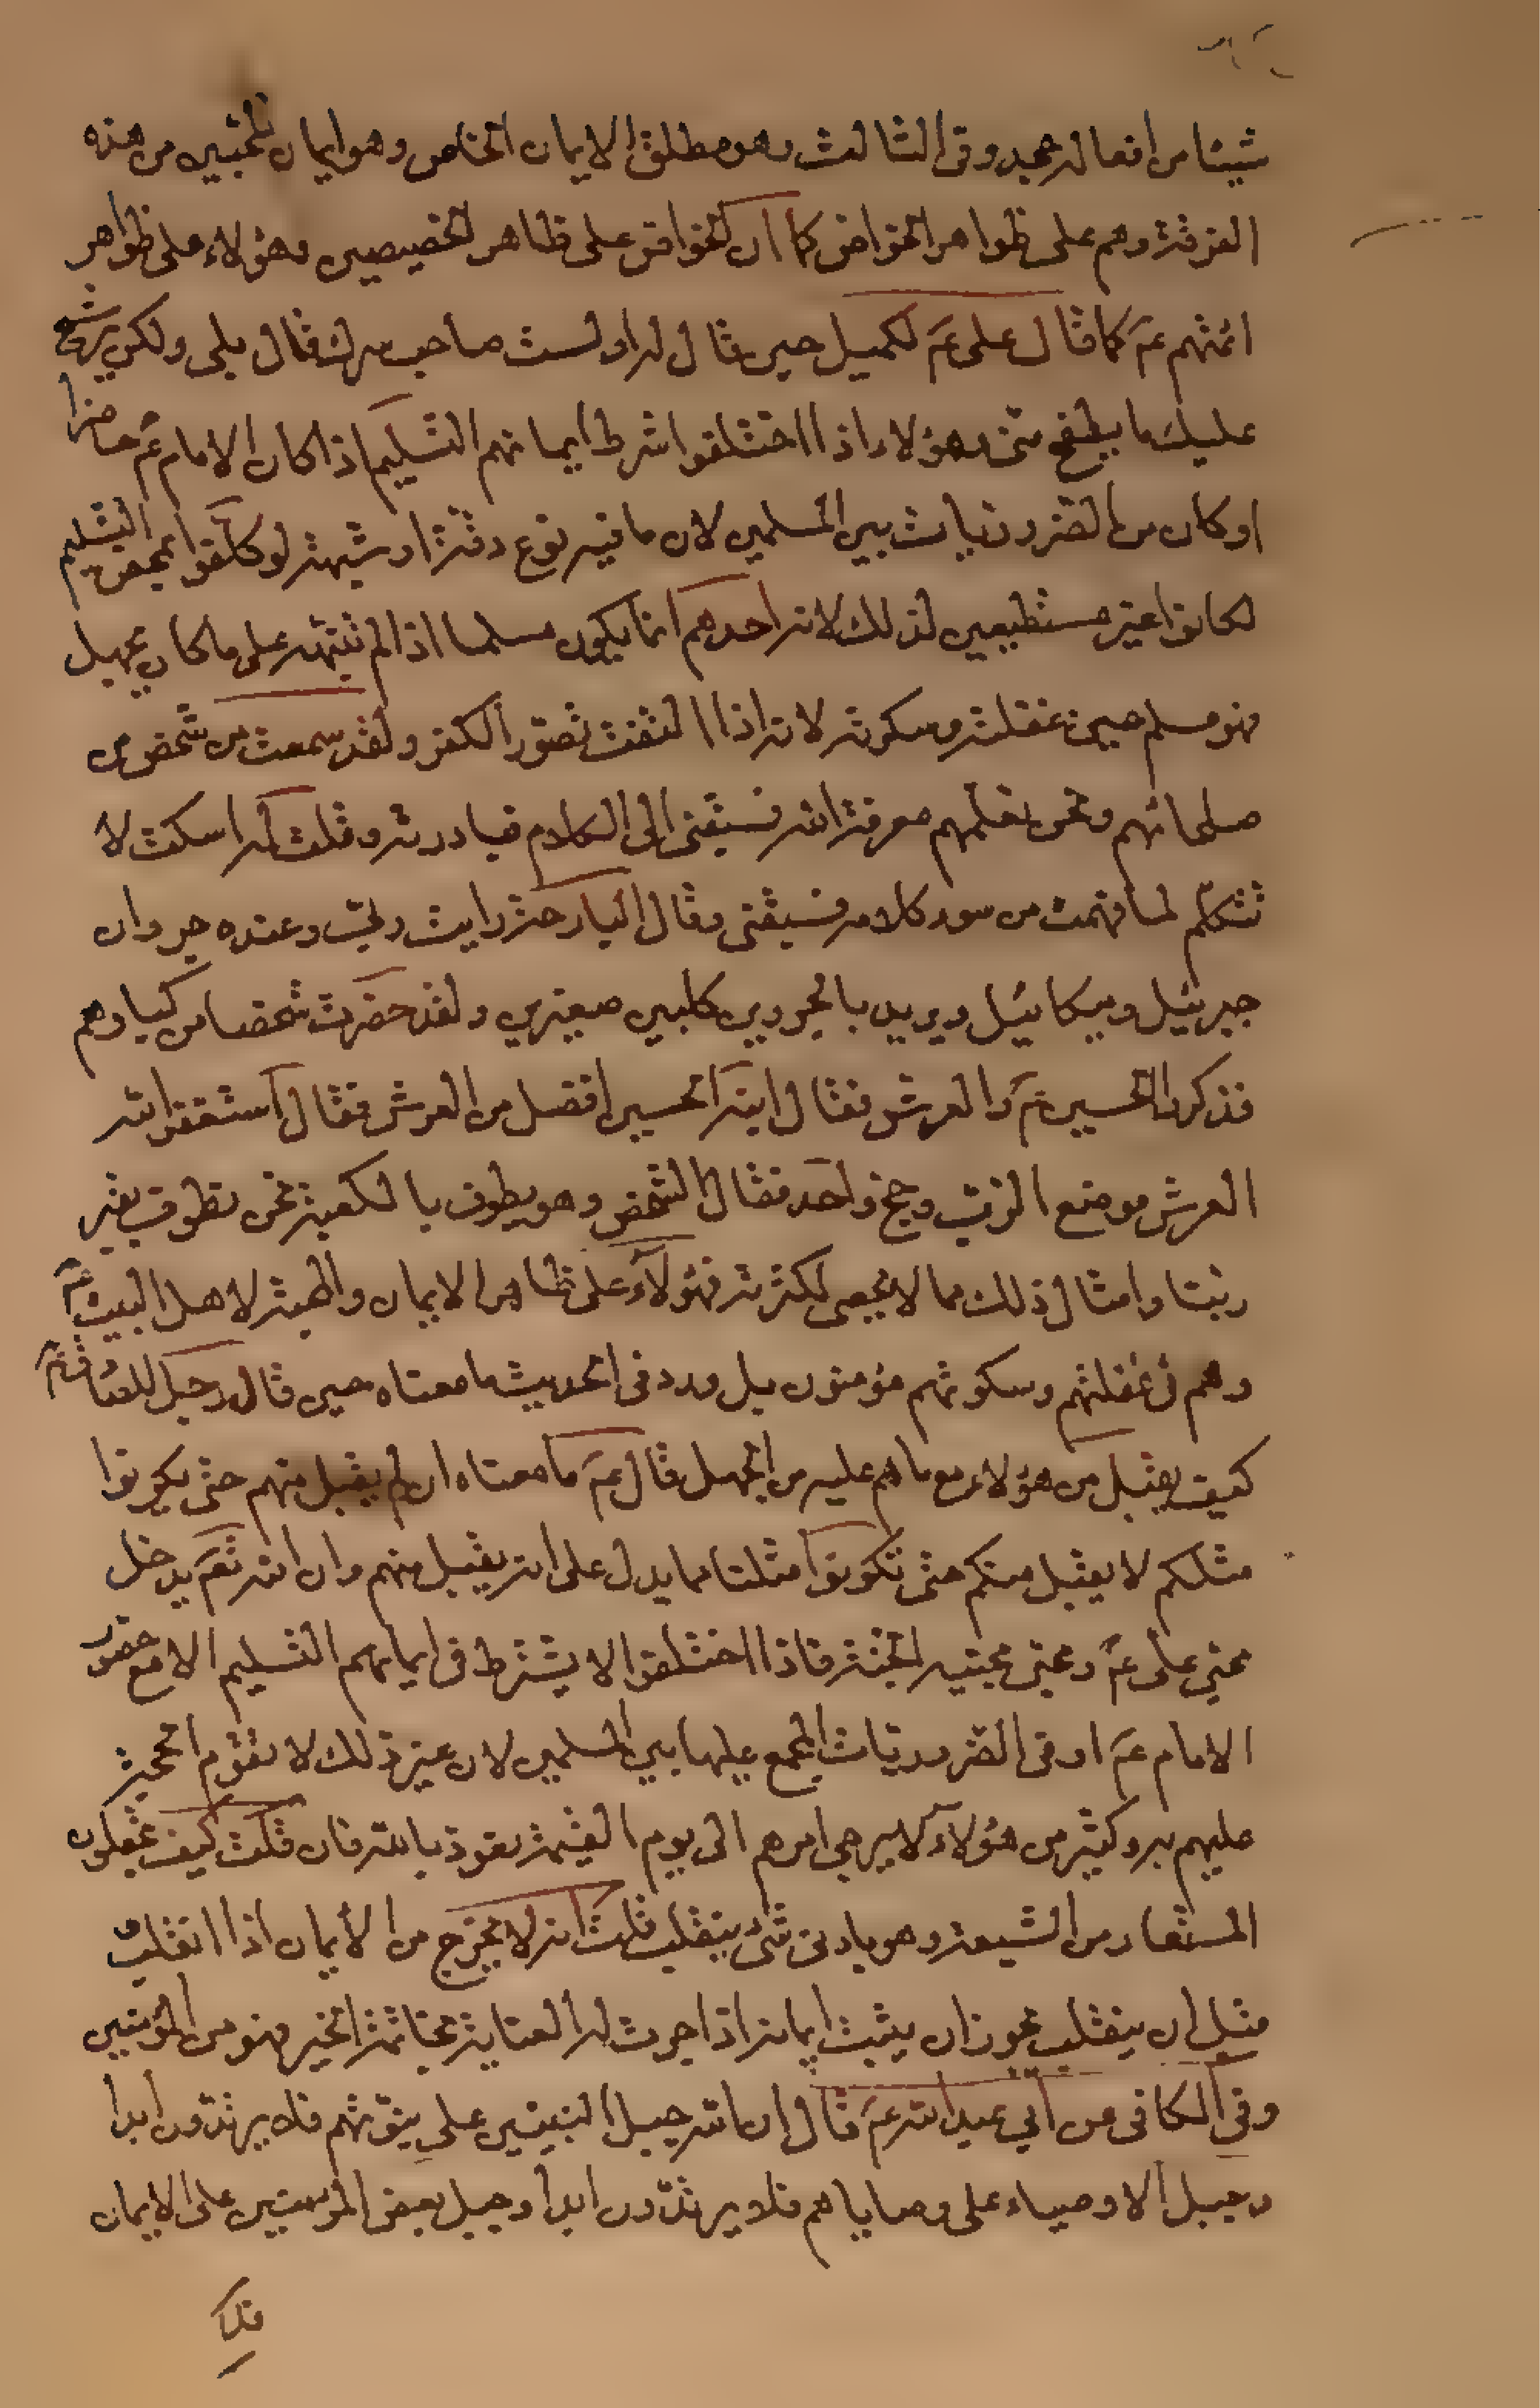 شيئا من افعاله عجد وفى الثالث وهو مطلق الايمان الخاص وهو ايمان المحبين من هذه
الفرقة وهم على ظواهر الخواص كما ان الخواص على ظاهر الخصيصين وهؤلاء على ظواهر
ائمتهم عم كما قال على عم لكميل حين قال له اولست صاحب سرك قال بلى ولكن يرشح
عليك ما يطفح منى وهؤلاء اذا اختلفوا شرط ايمانهم التسليم اذا كان الامام عم حاضرا
او كان من الضروريات بين المسلمين لان ما فيه نوع دقة او شبهة لو كلفوا بمحض التسليم
لكانوا غير مستطيعين لذلك لانه احدهم انما يكون مسلما اذا لم تنبهه على ما كان يجهل
فهو مسلم حين غفلته وسكوته لانه اذا التفت تصور الكفر ولقد سمعت من شخص من
صلحائهم ونحن نعلمهم معرفة الله فسبقنى الى الكلام فبادرته وقلت له اسكت لا
تتكلم لما فهمت من سوء كلامه فسبقنى وقال البارحة رايت ربى وعنده جروان
جبرئيل وميكائيل ويريد بالجروين كلبين صغيرين ولقد حضرت شخصا من كبارهم
فذكر الحسين عم والعرش فقال ابنه الحسين افضل من العرش فقال استغفر الله
العرش موضع الرب وحج واحد فقال الشخص وهو يطوف بالكعبة نحن نطوف بقبر
ربنا وامثال ذلك مما لا يحصى لكثرته فهؤلاء على ظاهر الايمان والمحبة لاهل البيت عم
وهم فى غفلتهم وسكوتهم مؤمنون بل ورد فى الحديث ما معناه حين قال رجل للصادق عم
كيف يقبل من هؤلاء مع ما هم عليه من الجهل قال عم ما معناه ان لم يقبل منهم حتى يكونوا
مثلكم لا يقبل منكم حتى تكونوا مثلنا مما يدل على انه يقبل منهم وان الله تعم يدخل
محبى على عم ومحبى محبيه الجنة فاذا اختلفوا لا يشترط فى ايمانهم التسليم الا مع حضور
الامام عم او فى الضروريات المجمع عليها بين المسلمين لان غير ذلك لا تقوم الحجة
عليهم به وكثير من هؤلاء لا يرجى امرهم الى يوم القيمة نعوذ بالله فان قلت كيف تجعلون
المستعار من الشيعة وهو بادنى شئ ينقلب قلت انه لا يخرج من الأيمان اذا انقلب
مثل ان ينقلب يجوز ان يثبت ايمانه اذا جرت له العناية بخاتمة الخير فهو من المؤمنين
وفى الكافى عن ابي عبد الله عم قال ان الله جبل النبيين على نبوتهم فلا يرتدون ابدا
وجبل الاوصياء على وصاياهم فلا يرتدون ابدا وجبل بعض المؤمنين على الايمان
فلا